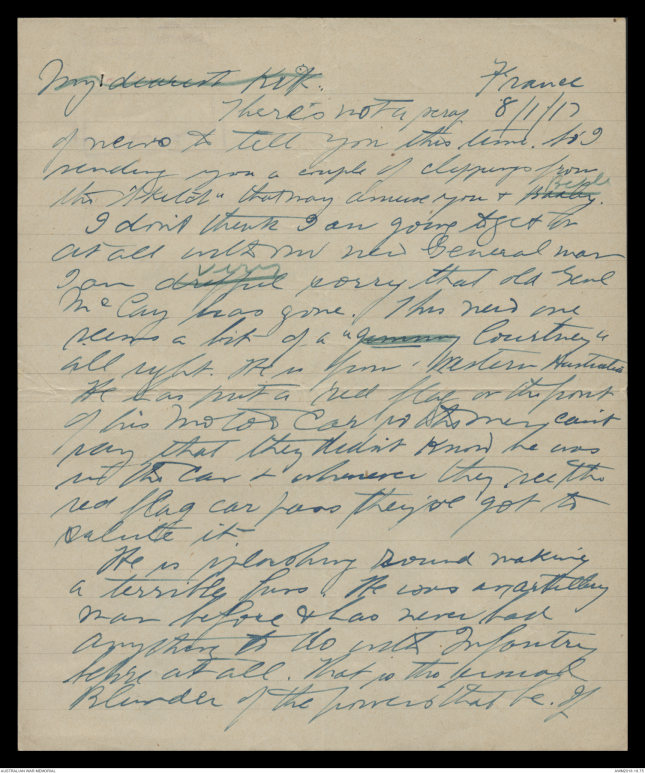 My dearest Kit. France
There's not a 8/1/17
of news to tell you this time. So I
sending you a couple of clippings from
the "Sketch" that may amuse you & people.
I don't think I am going to get on
at all with our new General man
I am very sorry that old Genl
McCay has gone. This new one
seems a bit of a "Courtney"
all right. He is from Western Australia
He has put a red flag on the front
of his Motor Car so the men can't
say that they didn't know he was
in the Car & whenever they see the
red flag car pass they've got to
salute it.
He is round making
a terrible fuss. He was an artillery
man before & has never had
anything to do with Infantry
before at all. That is the usual
Blunder of the powers that be. If
AUSTRALIAN WAR MEMORIAL